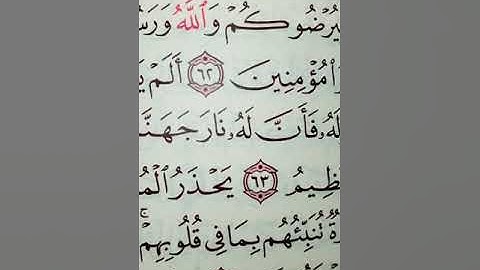 يُرۡضُوكُمۡ وَٱللَّهُ وَرَسُ
مُؤۡمِنِينَ ٦٢ أَلَمۡ يَ
لَهُۥ فَأَنَّ لَهُۥ نَارَ جَهَنَّ
ظِيمُ ٦٣ يَحۡذَرُ ٱلۡمُ
ةٞ تُنَبِّئُهُم بِمَا فِي قُلُوبِهِمۡۚ